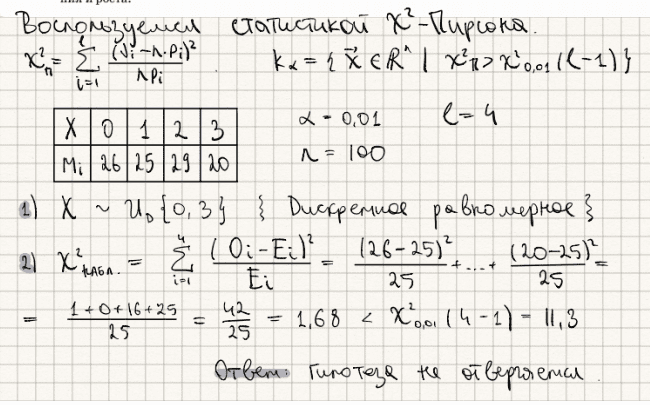 ния и роста.
Воспользуемся статистикой X²-Пирсона.
X²п = Σ_{i=1}^{l} (νi - n·pi)² / npi . Kα = { x⃗ ∈ Rⁿ | X²п > X²0,01 (l-1) }
X 0 1 2 3
Mi 26 25 29 20
α - 0,01 l = 4
n = 100
1) X ~ UD {0, 3} } Дискретное равномерное }
2) X²набл. = Σ_{i=1}^{4} (Oi - Ei)² / Ei = (26-25)² / 25 + ... + (20-25)² / 25 =
= (1+0+16+25) / 25 = 42/25 = 1,68 < X²0,01 (4-1) = 11,3
Ответ: гипотеза не отвергается.